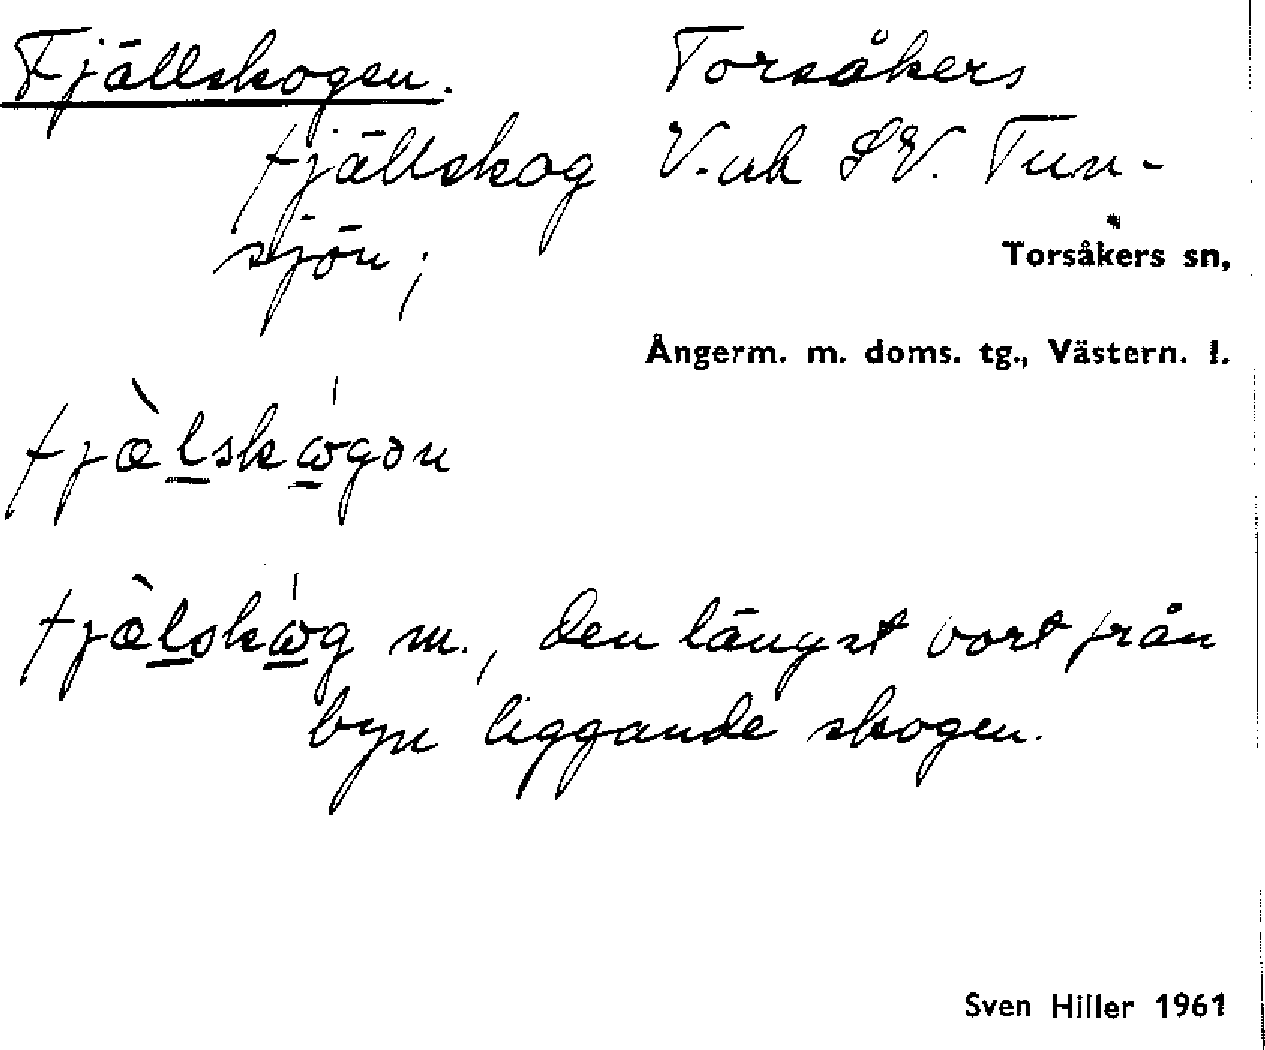 Fjällskogen. Torsåkers
fjällskog V. och SV. Tun-
sjön;
Torsåkers sn,
Ångerm. m. doms. tg., Västern. l.
fjæ̀lskω̇́gən
fjæ̀lskω̇́g m., den längst bort från
byn liggande skogen.
Sven Hiller 1961